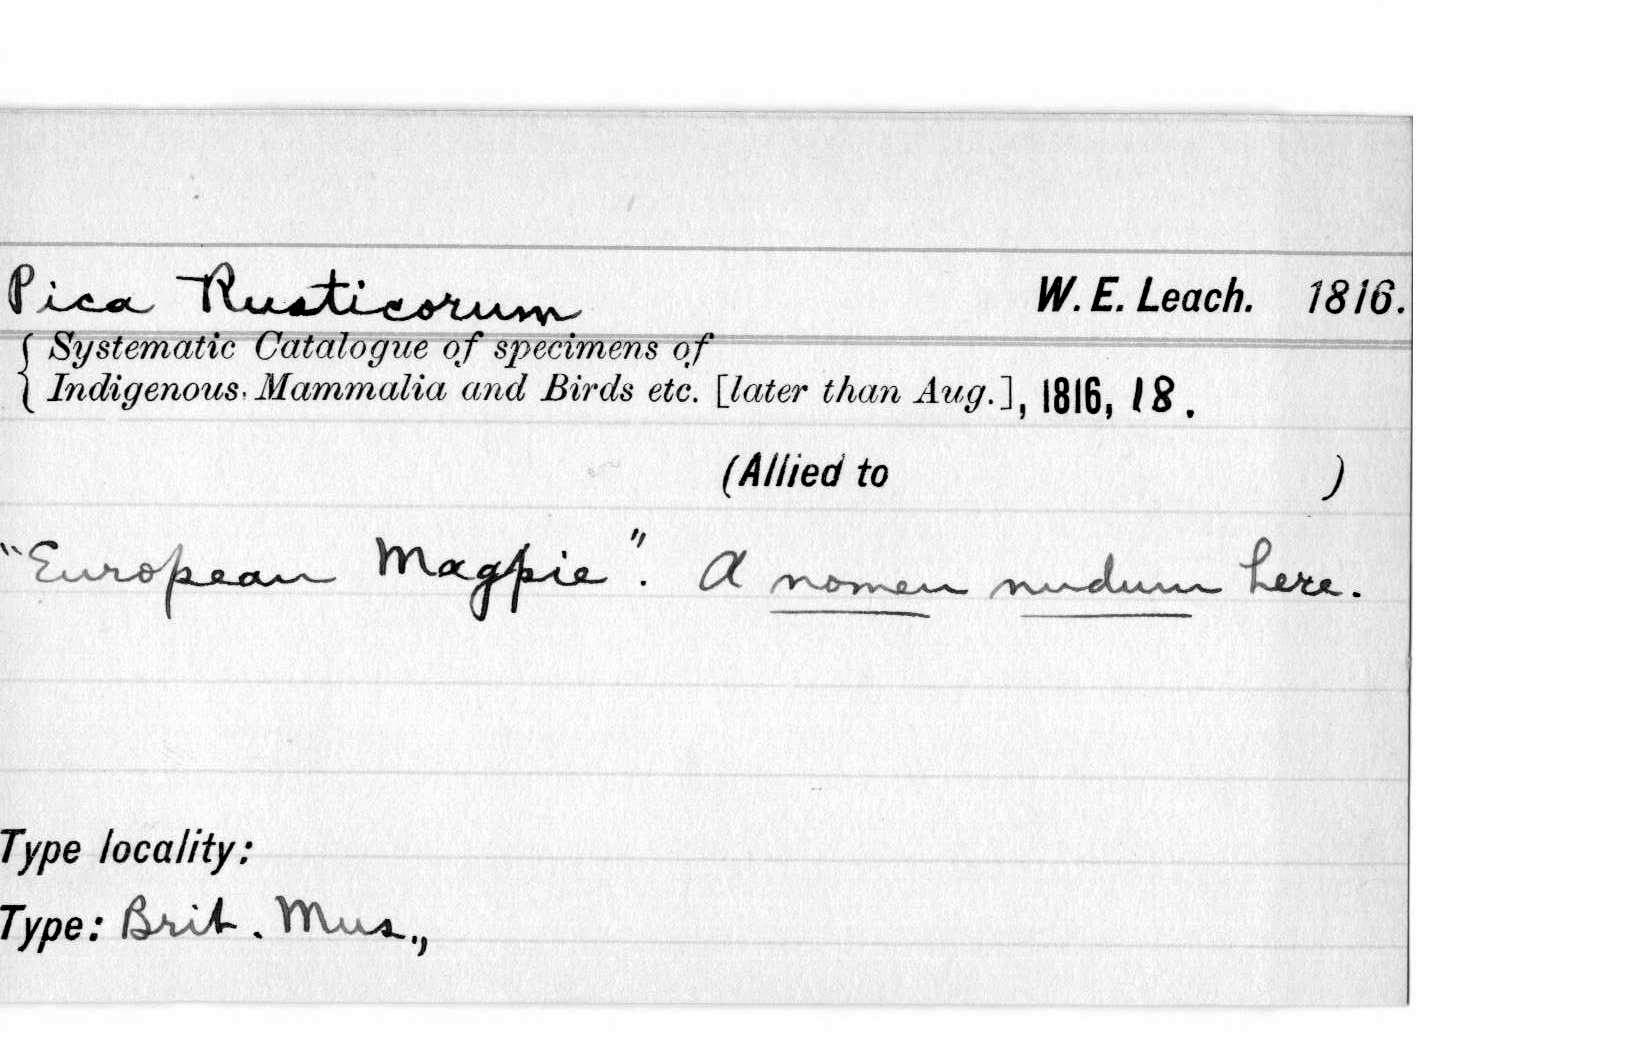 Pica Rusticorum W. E. Leach. 1816.
Systematic Catalogue of specimens of
Indigenous. Mammalia and Birds etc. [later than Aug.], 1816, 18.
(Allied to )
"European Magpie". A nomen nudum here.
Type locality:
Type: Brit. Mus.,